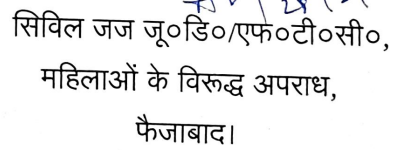 सिविल जज जू०डि०/एफ०टी०सी०,
महिलाओं के विरूद्ध अपराध,
फैजाबाद।